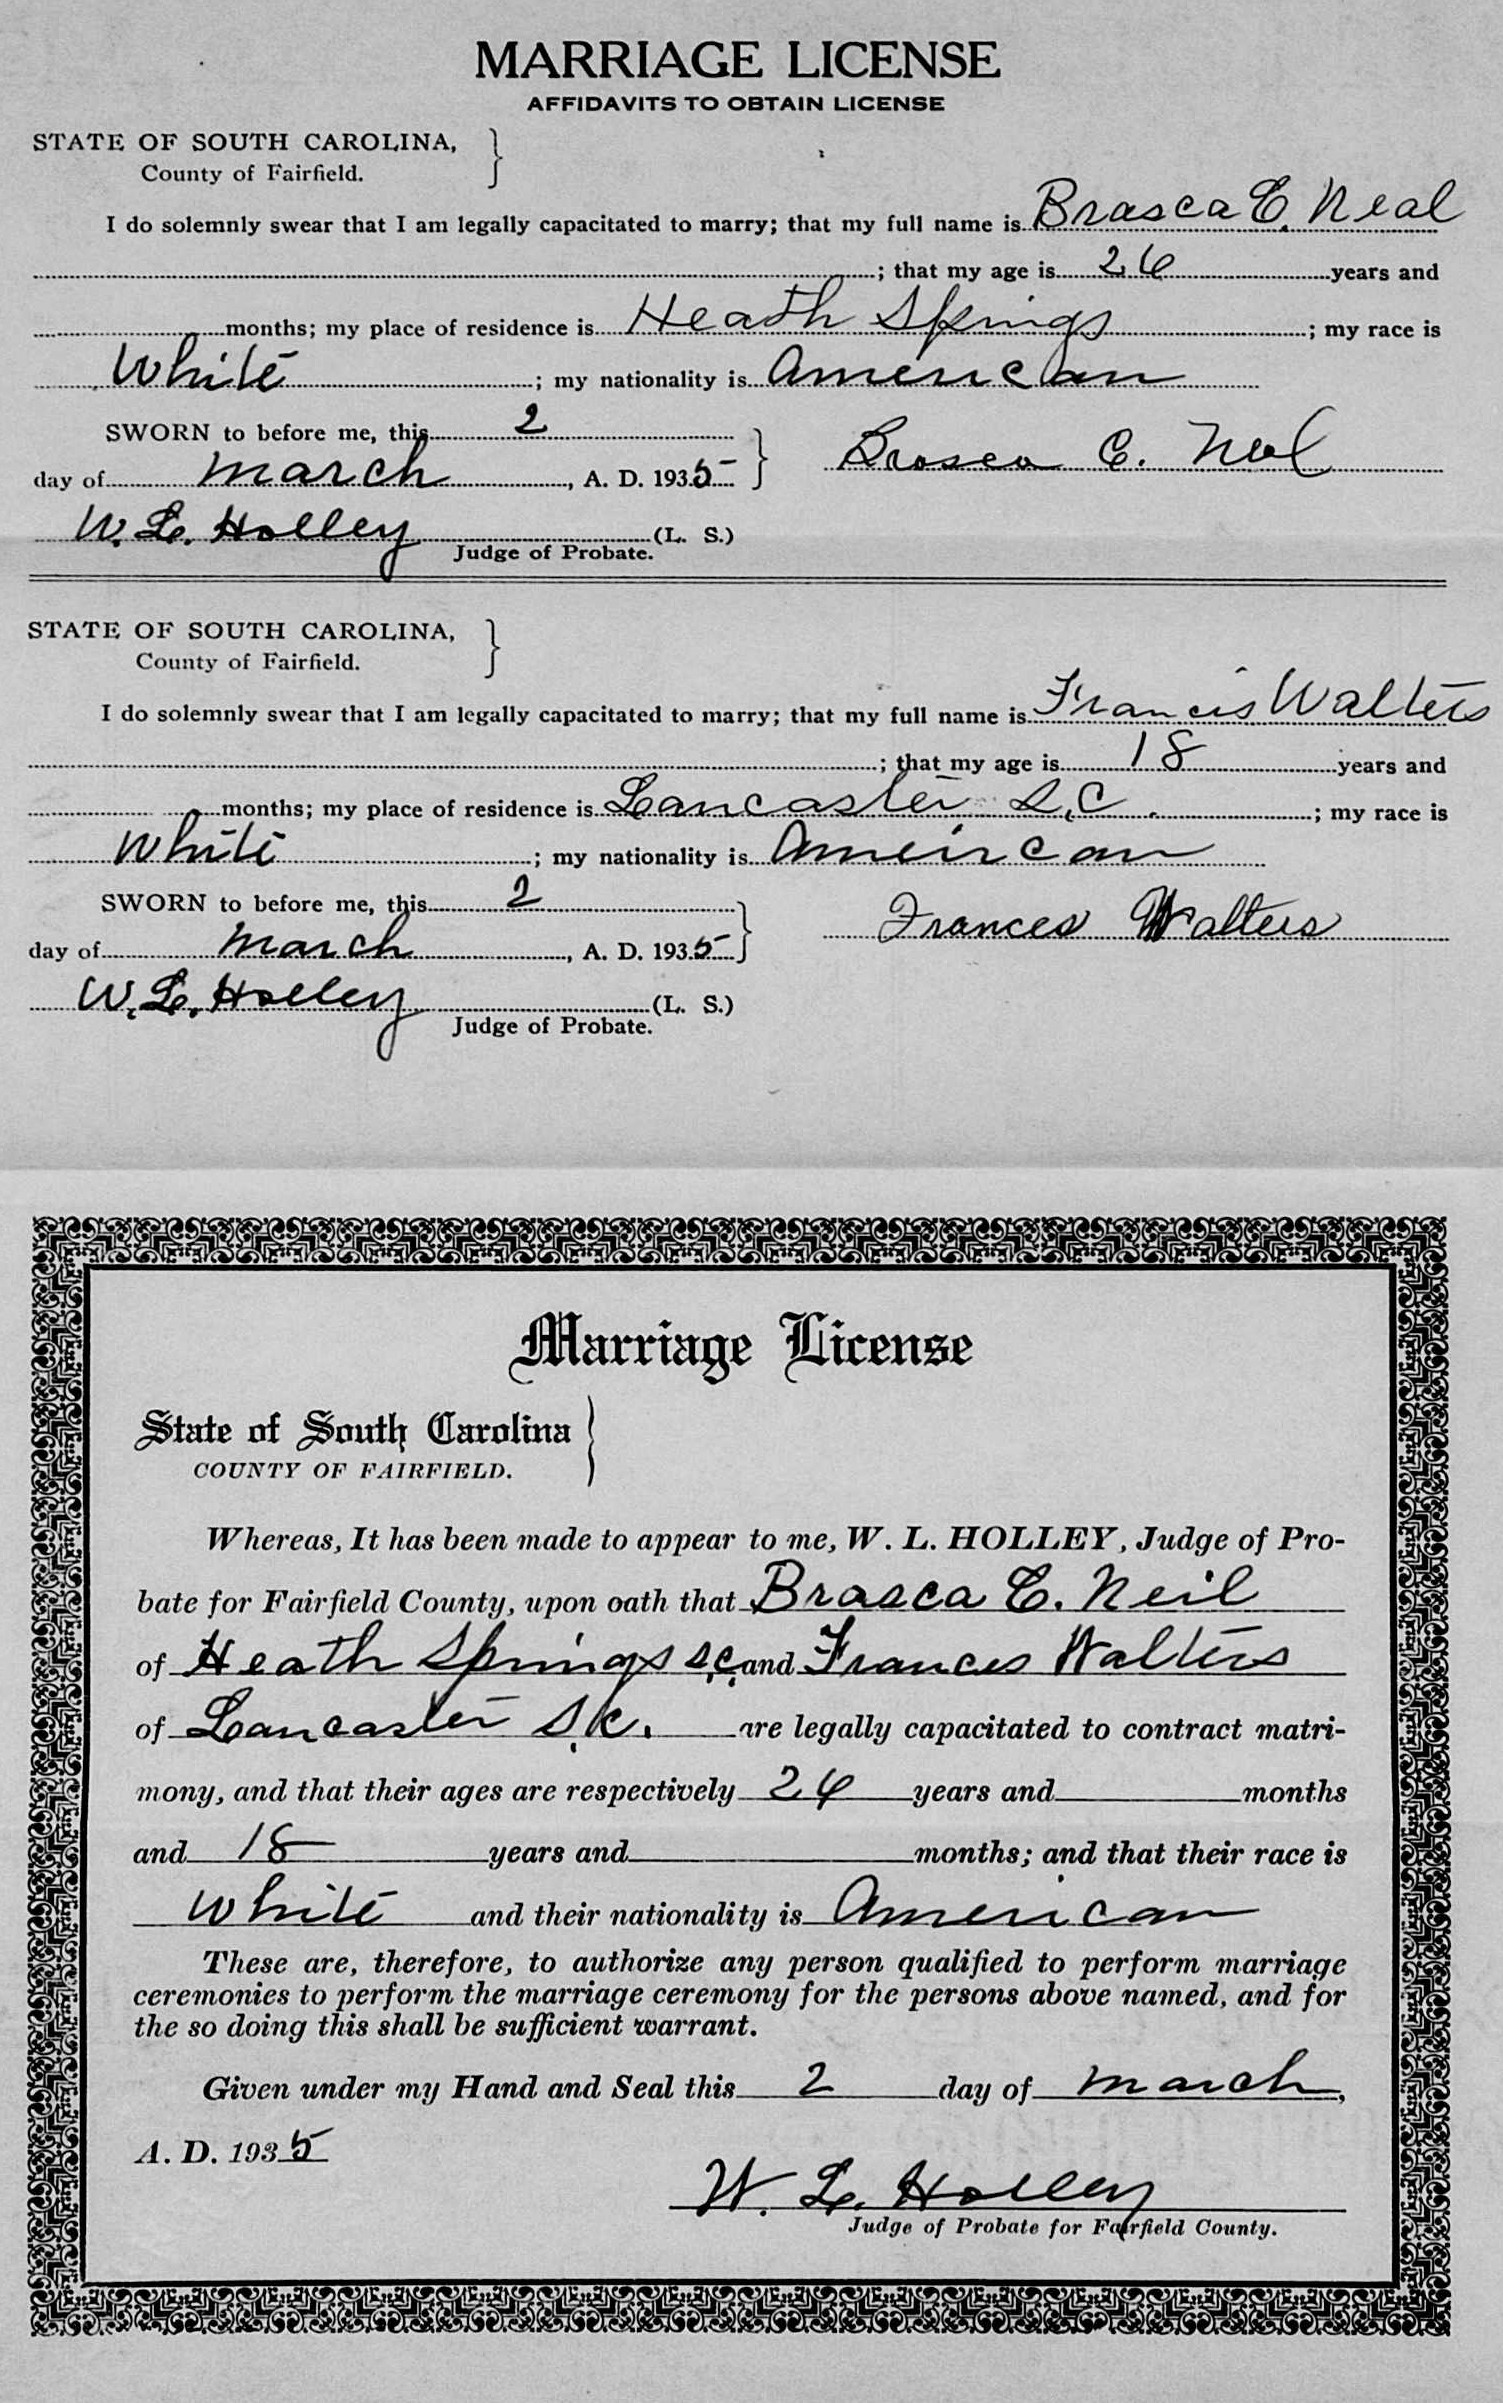 MARRIAGE LICENSE
AFFIDAVITS TO OBTAIN LICENSE
STATE OF SOUTH CAROLINA,
County of Fairfield.
I do solemnly swear that I am legally capacitated to marry; that my full name is Brasca E. Neal
; that my age is 26 years and
months; my place of residence is Heath Springs ; my race is
White ; my nationality is American
SWORN to before me, this 2
day of March, A. D. 1935 Brasca C. Neal
W. L. Holley (L. S.)
Judge of Probate.
STATE OF SOUTH CAROLINA,
County of Fairfield.
I do solemnly swear that I am legally capacitated to marry; that my full name is Francis Walters
; that my age is 18 years and
months; my place of residence is Lancaster S.C. ; my race is
White ; my nationality is Ameircan
SWORN to before me, this 2
day of March, A. D. 1935 Frances Walters
W. L. Holley (L. S.)
Judge of Probate.
Marriage License
State of South Carolina
COUNTY OF FAIRFIELD.
Whereas, It has been made to appear to me, W. L. HOLLEY, Judge of Pro-
bate for Fairfield County, upon oath that Brasca C. Neil
of Heath Springs S.C. and Frances Walters
of Lancaster S.C. are legally capacitated to contract matri-
mony, and that their ages are respectively 26 years and months
and 18 years and months; and that their race is
White and their nationality is American
These are, therefore, to authorize any person qualified to perform marriage
ceremonies to perform the marriage ceremony for the persons above named, and for
the so doing this shall be sufficient warrant.
Given under my Hand and Seal this 2 day of March,
A. D. 1935
W. L. Holley
Judge of Probate for Fairfield County.